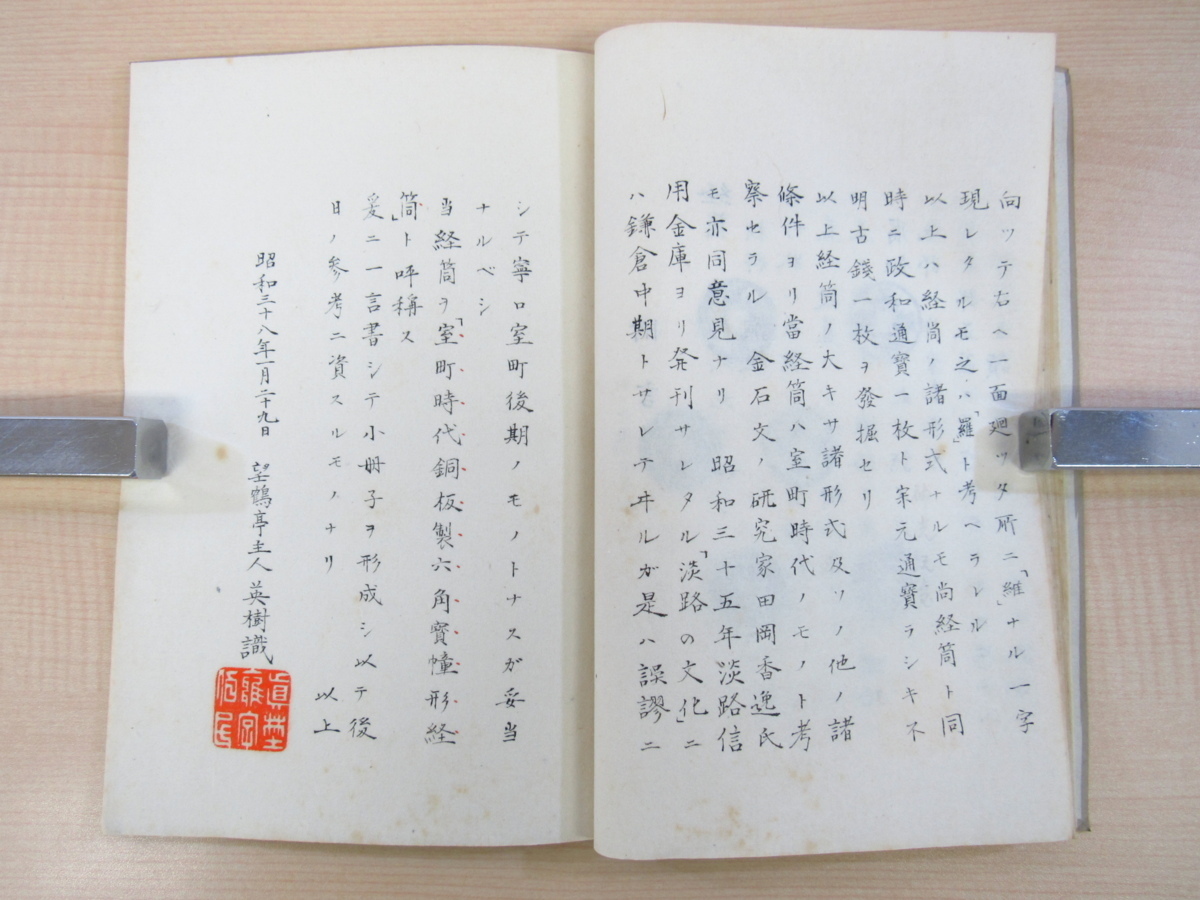 向ツテ右ヘ一面廻ツタ所ニ「維」ナル一字
現レタルモ之ハ「羅」ト考ヘラレル
以上ハ経筒ノ諸形式ナルモ尚経筒ト同
時ニ政和通寳一枚ト宋元通寳ラシキ不
明古錢一枚ヲ發掘セリ
以上経筒ノ大キサ諸形式及ソノ他ノ諸
條件ヨリ當経筒ハ室町時代ノモノト考
察セラル 金石文ノ研究家田岡香逸氏
モ亦同意見ナリ 昭和三十五年淡路信
用金庫ヨリ発刊サレタル「淡路の文化」ニ
ハ鎌倉中期トサレテヰルガ是ハ誤謬ニ
シテ寧ロ室町後期ノモノトナスガ妥当
ナルベシ
当経筒ヲ「室町時代銅板製六角寳幢形経
筒」ト呼稱ス
爰ニ一言書シテ小冊子ヲ形成シ以テ後
日ノ參考ニ資スルモノナリ 以上
昭和三十八年一月二十九日 望鶴亭主人 英樹識